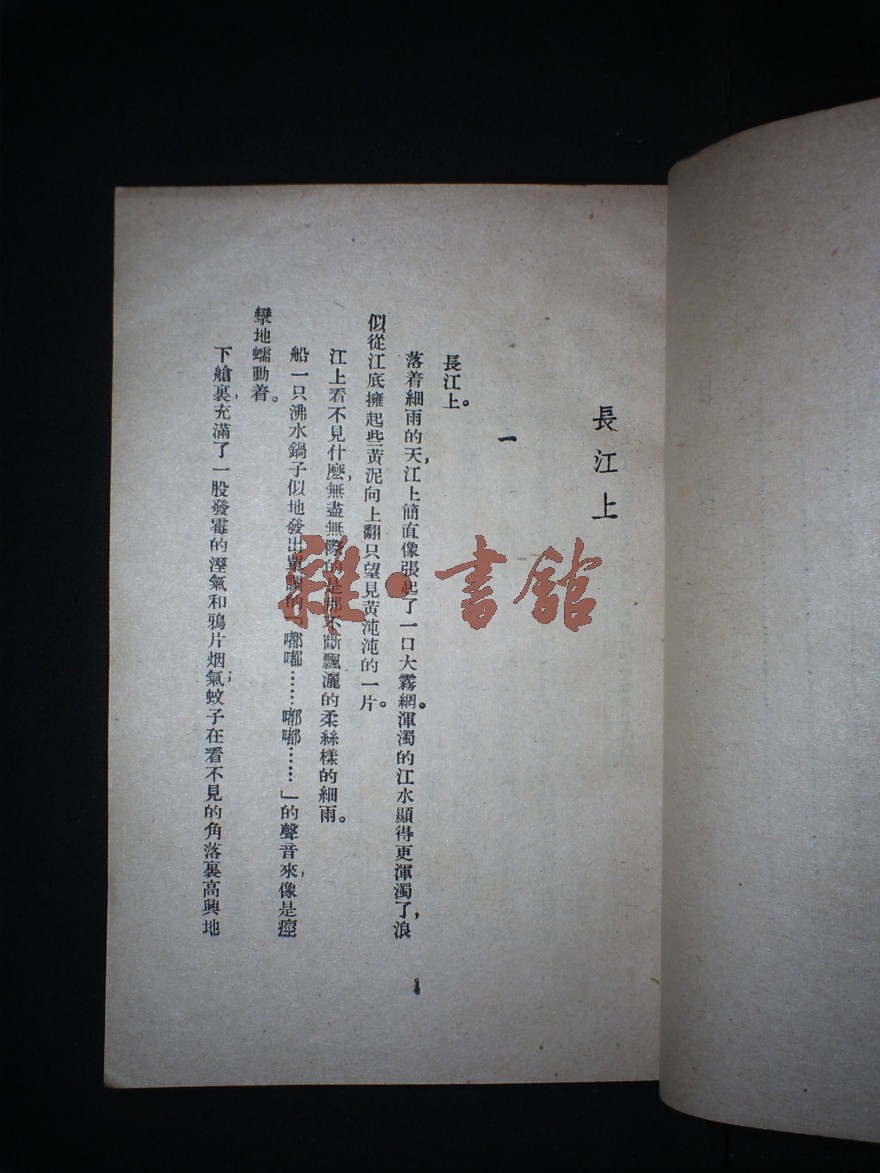 長江上
一
長江上。
落着細雨的天，江上簡直像張起了一口大霧網。渾濁的江水顯得更渾濁了，浪
似從江底擁起些黃泥向上翻只望見黃沌沌的一片。
江上看不見什麽，無盡無際的是那不斷飄灑的柔絲樣的細雨。
船一只沸水鍋子似地發出單調的「嘟嘟……嘟嘟……」的聲音來，像是痙
攣地蠕動着。
下艙裏，充滿了一股發霉的溼氣和鴉片烟氣；蚊子在看不見的角落裏高興地
1
雜·書館